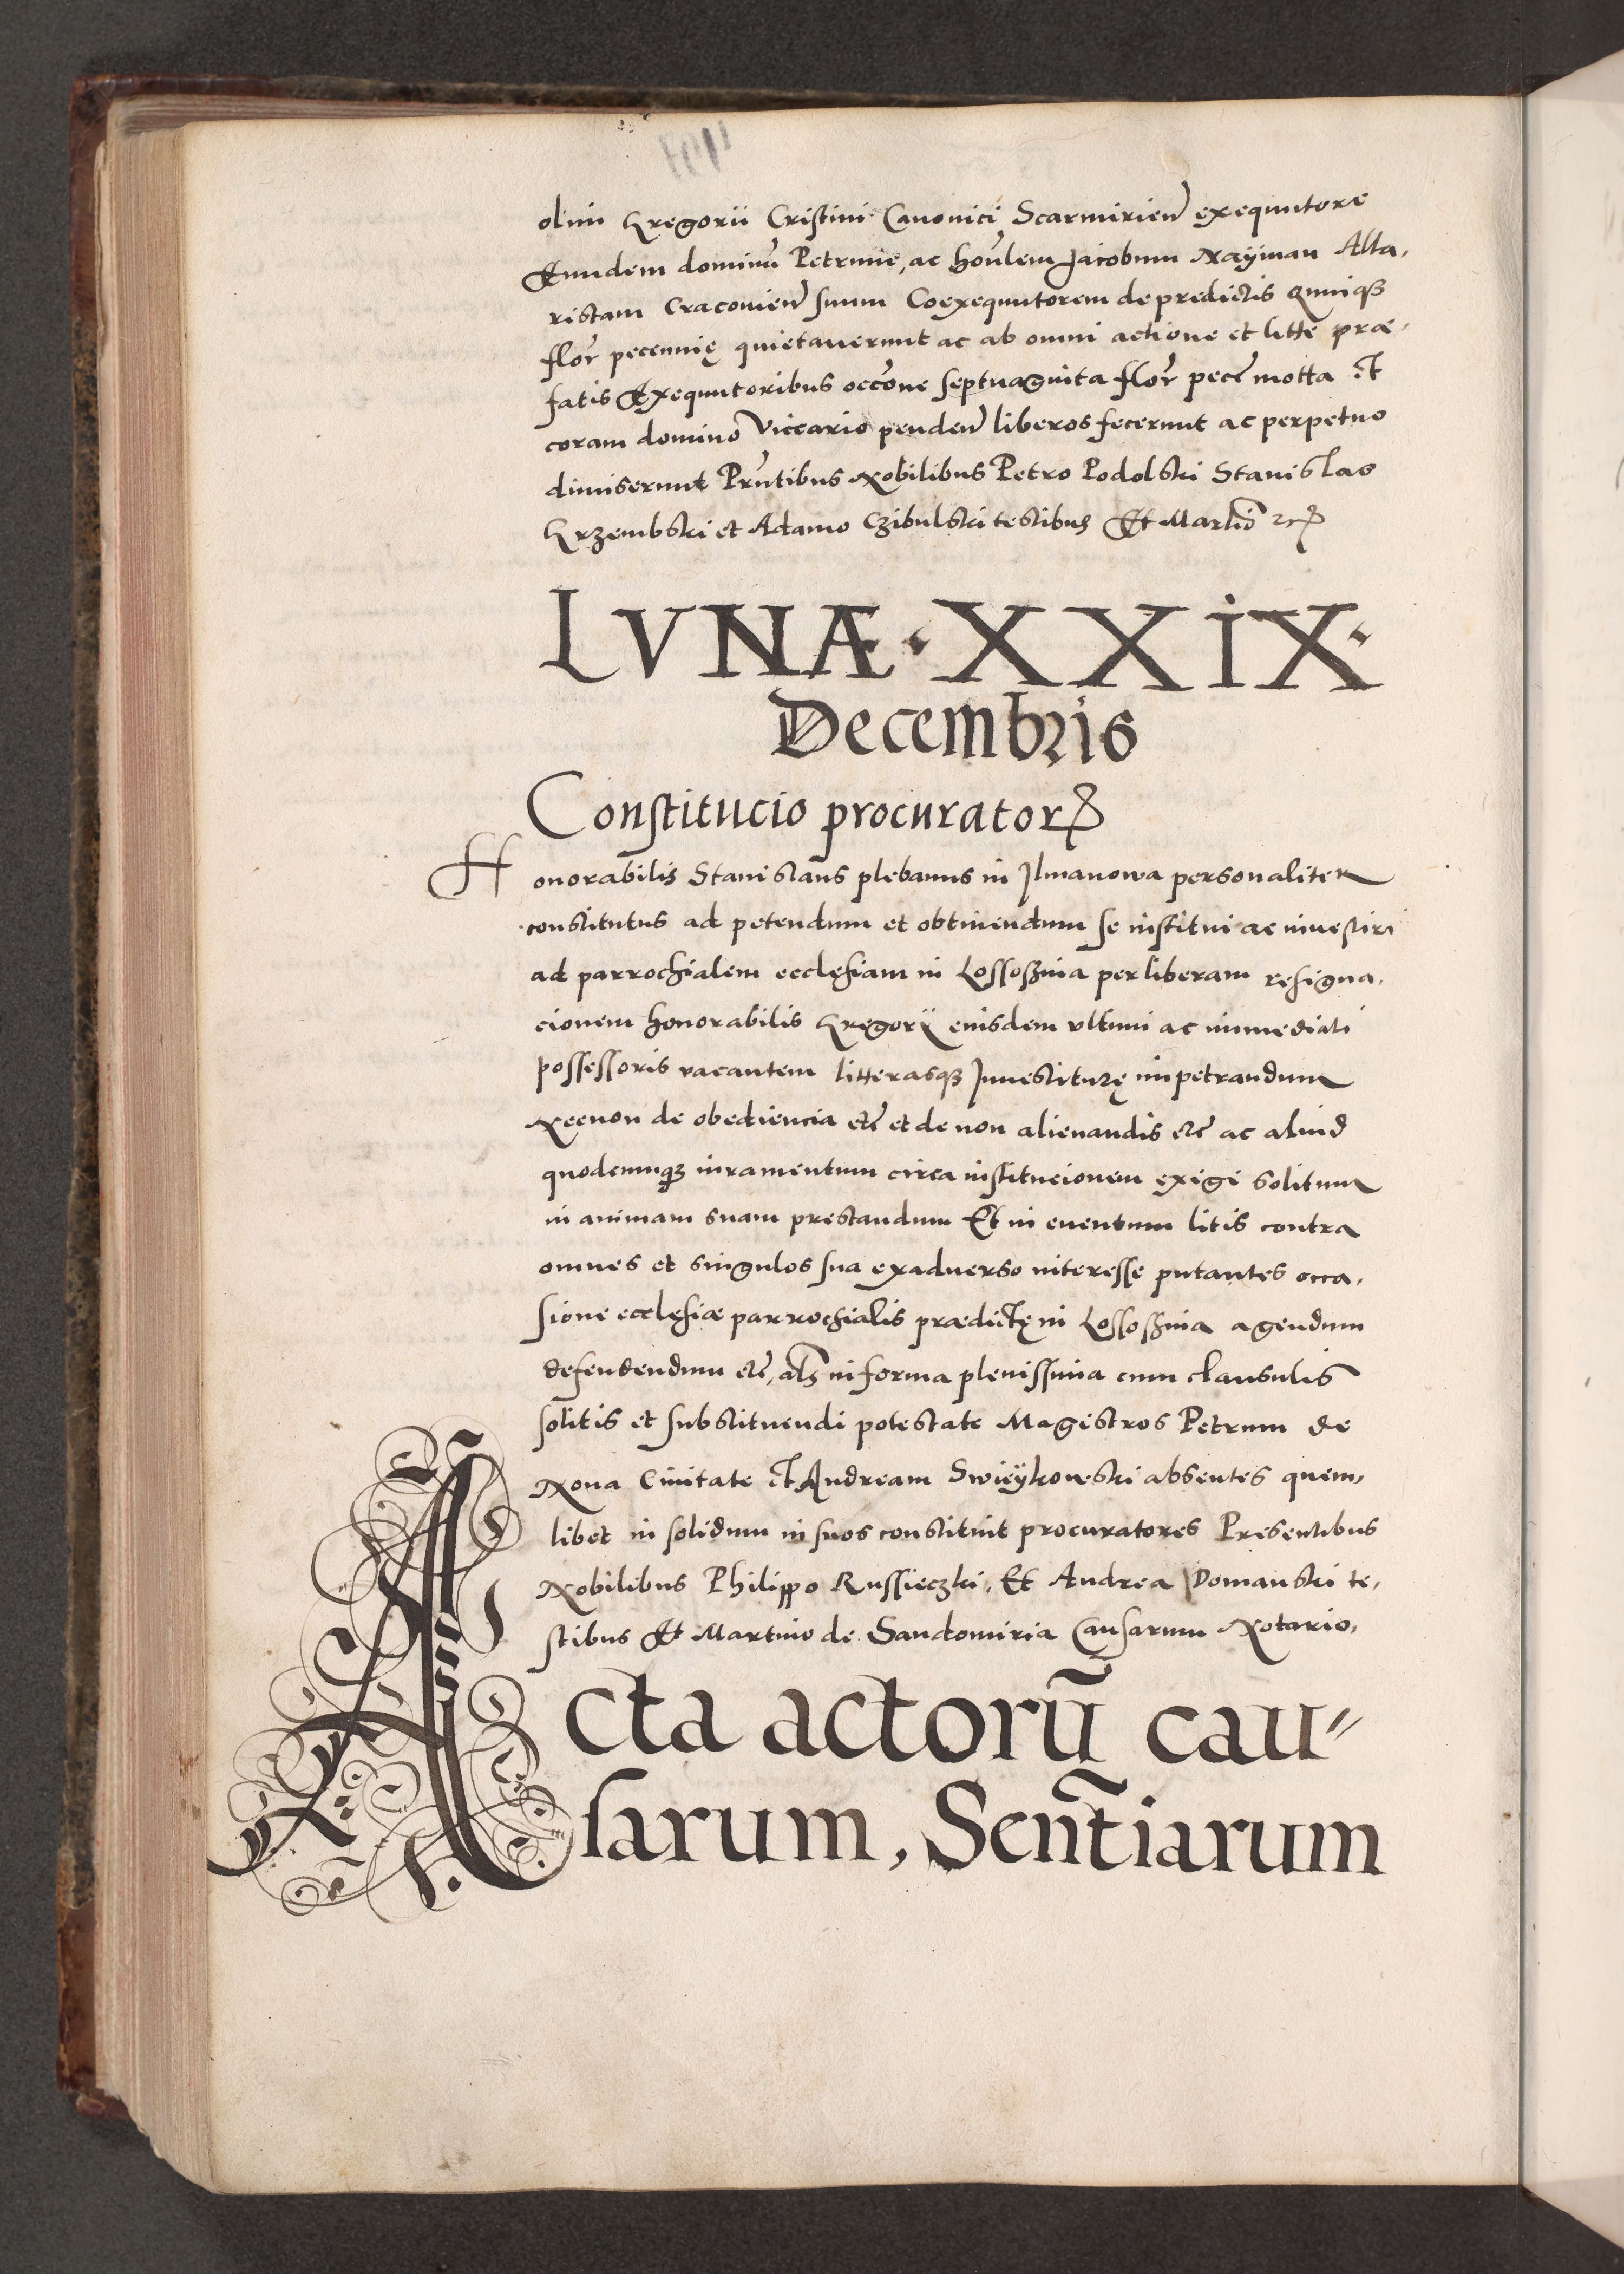 olim Gregorii Cristini Canonici Scarmirien̄ exequutore
Eundem dominū Petrum, ac hon̄lem Jacobum Nayman Alta,
ristam Cracovien̄ suum Coexequutorem de predictis Quinqꝫ
flor̄ pecunnię quietaverunt ac ab omni actione et litte præ,
fatis Exequutoribus occōne septuaginta flor̄ pecc̄ motta Et
coram domino Viccario penden̄ liberos fecerunt ac perpetuo
dimiserunt Prn̄tibus Nobilibus Petro Podolski Stanislao
Grzembski et Adamo Czibulski testibus Et Martīo
LVNÆ · XXIX ·
Decembris
Constitucio procuratorꝝ
Honorabilis Stanislaus plebanus in Jlmanowa personaliter
constitutus ad petendum et obtinendum se institui ac investiri
ad parrochialem ecclesiam in Lossoszina per liberam resigna,
cionem honorabilis Gregorij eiusdem vltimi ac immediati
possessoris vacantem litterasqꝫ Jnvestiturę impetrandum
Necnon de obediencia etc̄ et de non alienandis etc̄ ac aliud
quodcunqꝫ iuramentum circa institucionem exigi solitum
in animam suam prestandum Et in eventum litis contra
omnes et singulos sua exadverso interesse putantes occa,
sione ecclesiæ parrochialis prædictę in Lossoszina agendum
defendendum etc̄, als̄ in forma plenissima cum clausulis
solitis et substituendi potestate Magistros Petrum de
Nova Civitate Et Andream Swieÿkowski absentes quem,
libet in solidum in suos constituit procuratores Presentibus
Nobilibus Philippo Russieczki, Et Andrea Domanski te,
stibus Et Martino de Sandomiria Causarum Notario,
Acta actorū cau〃
sarum, Sen̄tiarum